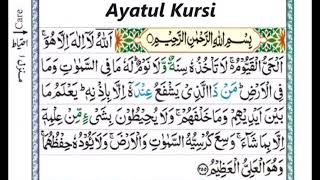 Ayatul Kursi
Care
بِسْمِ اللّٰهِ الرَّحْمٰنِ الرَّحِيْمِ اَللّٰهُ لَاۤ اِلٰهَ اِلَّا هُوَ ۚ
اَلْحَىُّ الْقَيُّوْمُ ۚ لَا تَاْخُذُهٗ سِنَةٌ وَّلَا نَوْمٌ ؕ لَهٗ مَا فِى السَّمٰوٰتِ وَمَا
فِى الْاَرْضِ ؕ مَنْ ذَا الَّذِىْ يَشْفَعُ عِنْدَهٗۤ اِلَّا بِاِذْنِهٖ ؕ يَعْلَمُ مَا
بَيْنَ اَيْدِيْهِمْ وَمَا خَلْفَهُمْ ۚ وَلَا يُحِيْطُوْنَ بِشَىْءٍ مِّنْ عِلْمِهٖۤ
اِلَّا بِمَا شَآءَ ۚ وَسِعَ كُرْسِيُّهُ السَّمٰوٰتِ وَالْاَرْضَ ۚ وَلَا يَـُٔوْدُهٗ حِفْظُهُمَا ۚ
وَهُوَ الْعَلِىُّ الْعَظِيْمُ ﴿۲۵۵﴾